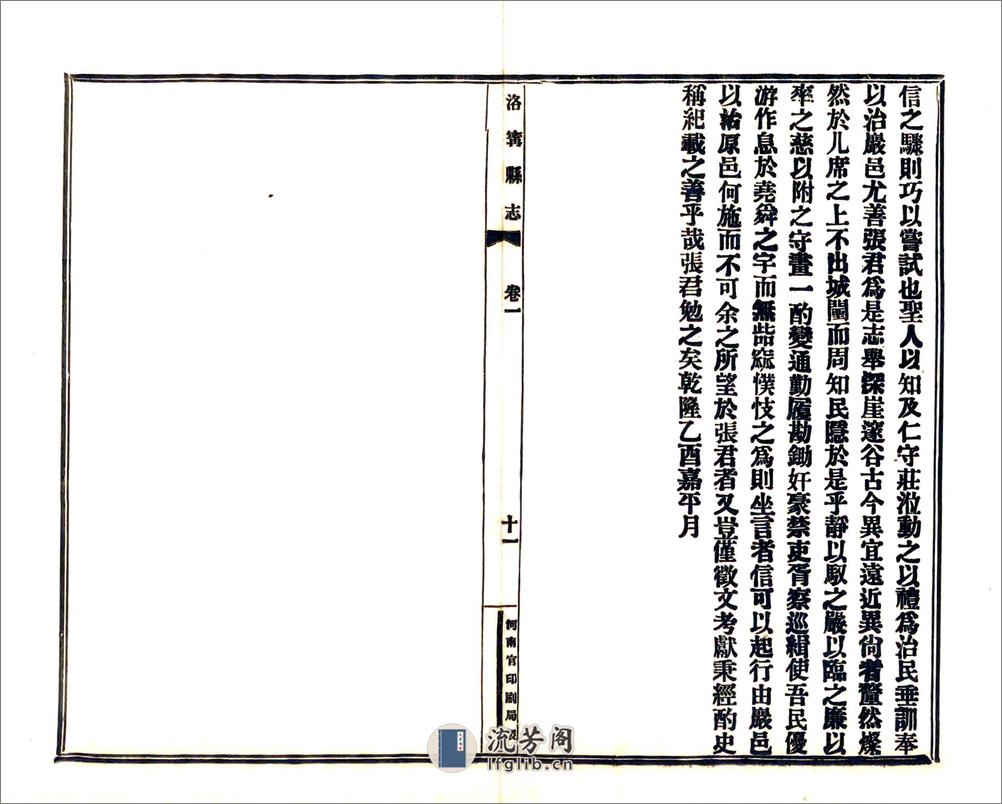 信之驟則巧以嘗試也聖人以知及仁守莊涖動之以禮爲治民垂訓奉
以治嚴邑尤善張君爲是志舉深崖邃谷古今異宜遠近異尙者釐然燦
然於几席之上不出城闉而周知民隱於是乎靜以馭之嚴以臨之廉以
率之慈以附之守畫一酌變通勤履勘鋤奸豪禁吏胥察巡緝使吾民優
游作息於堯舜之宇而無啙窳懻忮之爲則坐言者信可以起行由嚴邑
以治原邑何施而不可余之所望於張君者又豈僅徵文考獻秉經酌史
稱紀載之善乎哉張君勉之矣乾隆乙酉嘉平月
洛寗縣志
卷一
十一
河南官印刷局
流芳阁
lfglib.cn